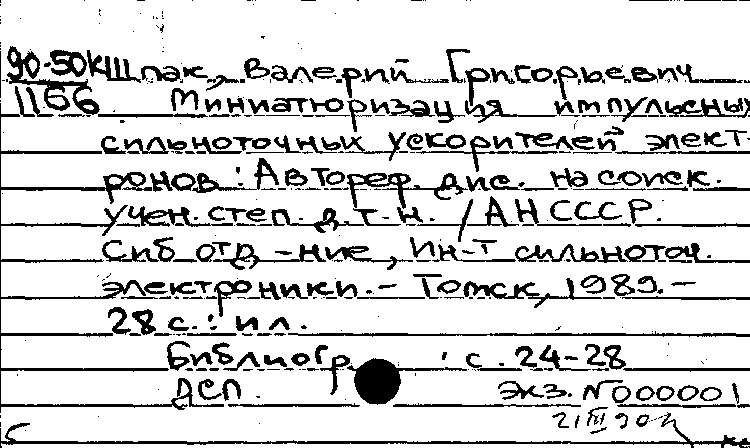 90-50к Шпак, Валерий Григорьевич
1166 Миниатюризация импульсных
сильноточных ускорителей элект-
ронов : Автореф. дис. на соиск.
учен. степ. д.т.н. / АН СССР.
Сиб отд-ние, Ин-т сильноточ.
электроники. - Томск, 1989. -
28 с. : ил.
Библиогр. : с. 24-28
ДСП. экз. N 000001
21 III 90